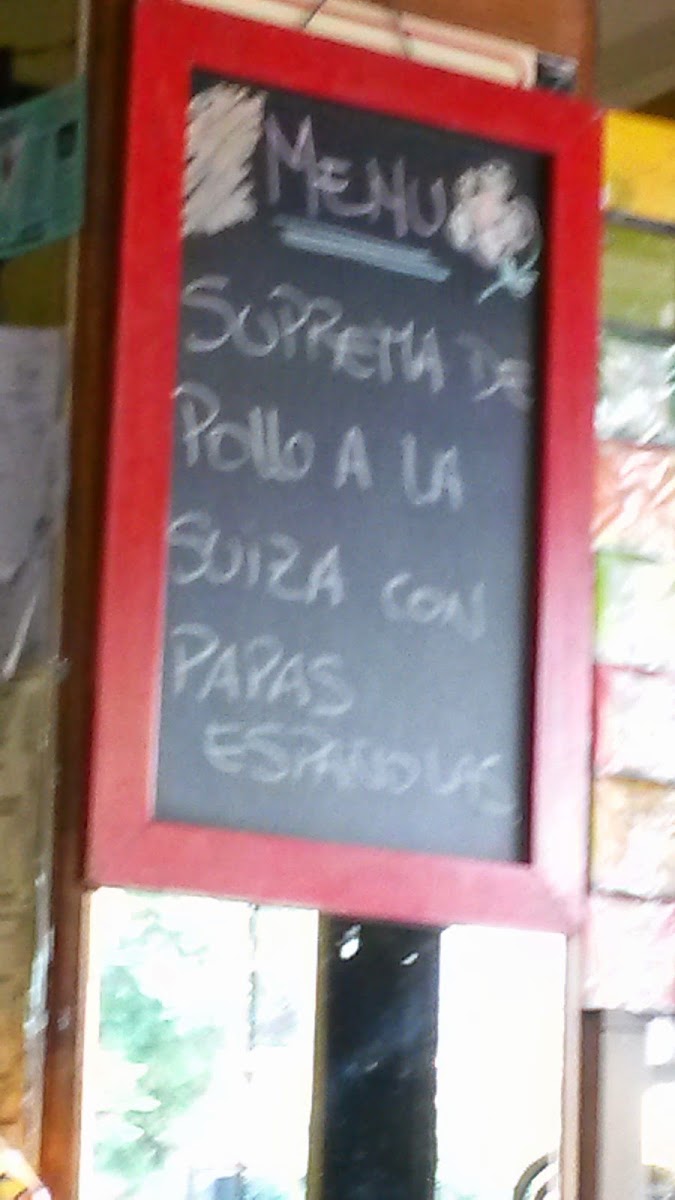 MENU
SUPREMA DE
Pollo A LA
SUIZA CON
PAPAS
ESPANOLAS